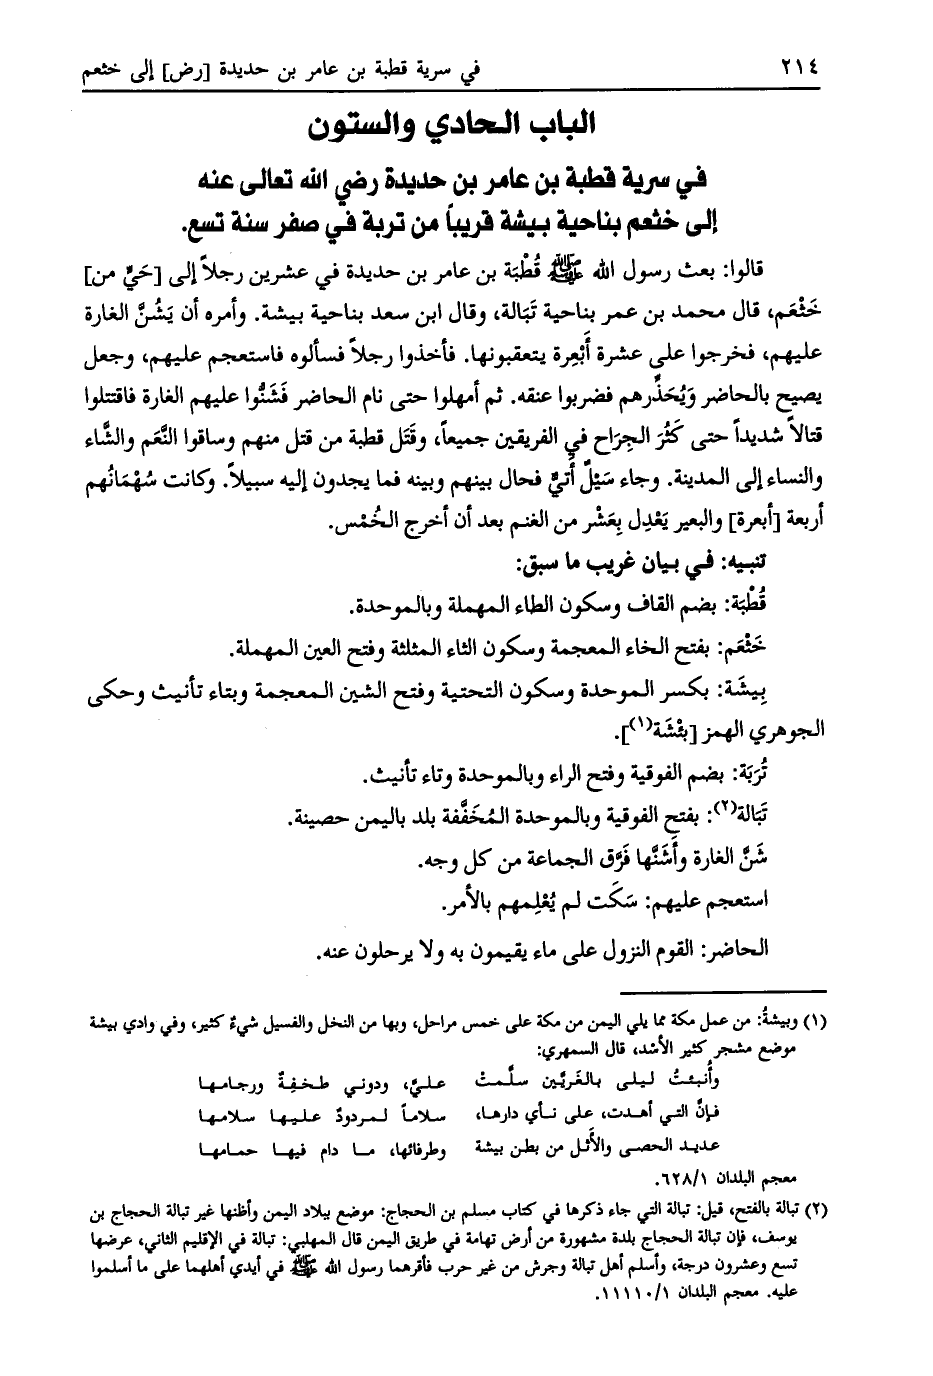 ٢١٤ في سرية قطبة بن عامر بن حديدة [رض] إلى خثعم
الباب الحادي والستون
في سرية قطبة بن عامر بن حديدة رضي الله تعالى عنه
إلى خثعم بناحية بيشة قريباً من تربة في صفر سنة تسع.
قالوا: بعث رسول الله ﷺ قُطْبَة بن عامر بن حديدة في عشرين رجلاً إلى [حَيٍّ من]
خَثْعَم، قال محمد بن عمر بناحية تَبَالة، وقال ابن سعد بناحية بيشة. وأمره أن يَشُنَّ الغارة
عليهم، فخرجوا على عشرة أَبْعِرة يتعقبونها. فأخذوا رجلاً فسألوه فاستعجم عليهم، وجعل
يصيح بالحاضر وَيُحَذِّرهم فضربوا عنقه. ثم أمهلوا حتى نام الحاضر فَشَنُّوا عليهم الغارة فاقتتلوا
قتالاً شديداً حتى كَثُرَ الجِرَاح في الفريقين جميعاً، وقَتَل قطبة من قتل منهم وساقوا النَّعَم والشَّاء
والنساء إلى المدينة. وجاء سَيْلٌ أَتيٌّ فحال بينهم وبينه فما يجدون إليه سبيلاً. وكانت سُهْمَانُهم
أربعة [أبعرة] والبعير يَعْدِل بِعَشْر من الغنم بعد أن أخرج الخُمْس.
تنبيه: في بيان غريب ما سبق:
قُطْبَة: بضم القاف وسكون الطاء المهملة وبالموحدة.
خَثْعَم: بفتح الخاء المعجمة وسكون الثاء المثلثة وفتح العين المهملة.
بِيشَة: بكسر الموحدة وسكون التحتية وفتح الشين المعجمة وبتاء تأنيث وحكى
الجوهري الهمز [بئْشَة(١)].
تُرَبَة: بضم الفوقية وفتح الراء وبالموحدة وتاء تأنيث.
تَبَالة(٢): بفتح الفوقية وبالموحدة المُخَفَّفة بلد باليمن حصينة.
شَنَّ الغارة وأَشَنَّها فَرَّق الجماعة من كل وجه.
استعجم عليهم: سَكَت لم يُعْلِمهم بالأمر.
الحاضر: القوم النزول على ماء يقيمون به ولا يرحلون عنه.
(١) وبيشةُ: من عمل مكة مما يلي اليمن من مكة على خمس مراحل، وبها من النخل والفسيل شيءٌ كثير، وفي وادي بيشة
موضع مشجر كثير الأسْد، قال السمهري:
وأُنبئتُ ليلى بالغَريَّين سلَّمتْ عليَّ، ودوني طخفةٌ ورجامها
فإنَّ التي أهدت، على نأي دارها، سلاماً لمردودٌ عليها سلامها
عديد الحصى والأَثل من بطن بيشة وطرفائها، ما دام فيها حمامها
معجم البلدان ٦٢٨/١.
(٢) تبالة بالفتح، قيل: تبالة التي جاء ذكرها في كتاب مسلم بن الحجاج: موضع ببلاد اليمن وأظنها غير تبالة الحجاج بن
يوسف، فإن تبالة الحجاج بلدة مشهورة من أرض تهامة في طريق اليمن قال المهلبي: تبالة في الإقليم الثاني، عرضها
تسع وعشرون درجة، وأسلم أهل تبالة وجرش من غير حرب فأقرهما رسول الله ﷺ في أيدي أهلهما على ما أسلموا
عليه. معجم البلدان ١١١١٠/١.